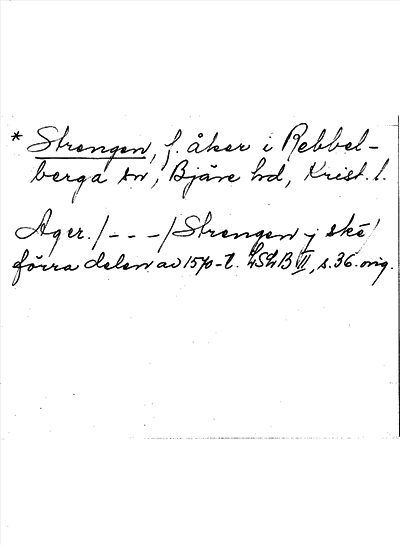 * Strengen, f. åker i Rebbel-
berga sn, Bjäre hd, Krist. l.
Ager. / - - - / Strengen j ske /
förra delen av 1570-t. LSLB VII, s. 36. orig.